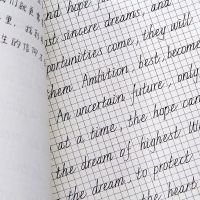 们就是
里，我
生的信仰
and hope
st sincere dreams, and
portunities come, they will
them. Ambition, best, become
An uncertain future, only
at a time, the hope can
the dream of highest. W
the dream to protect
the heart